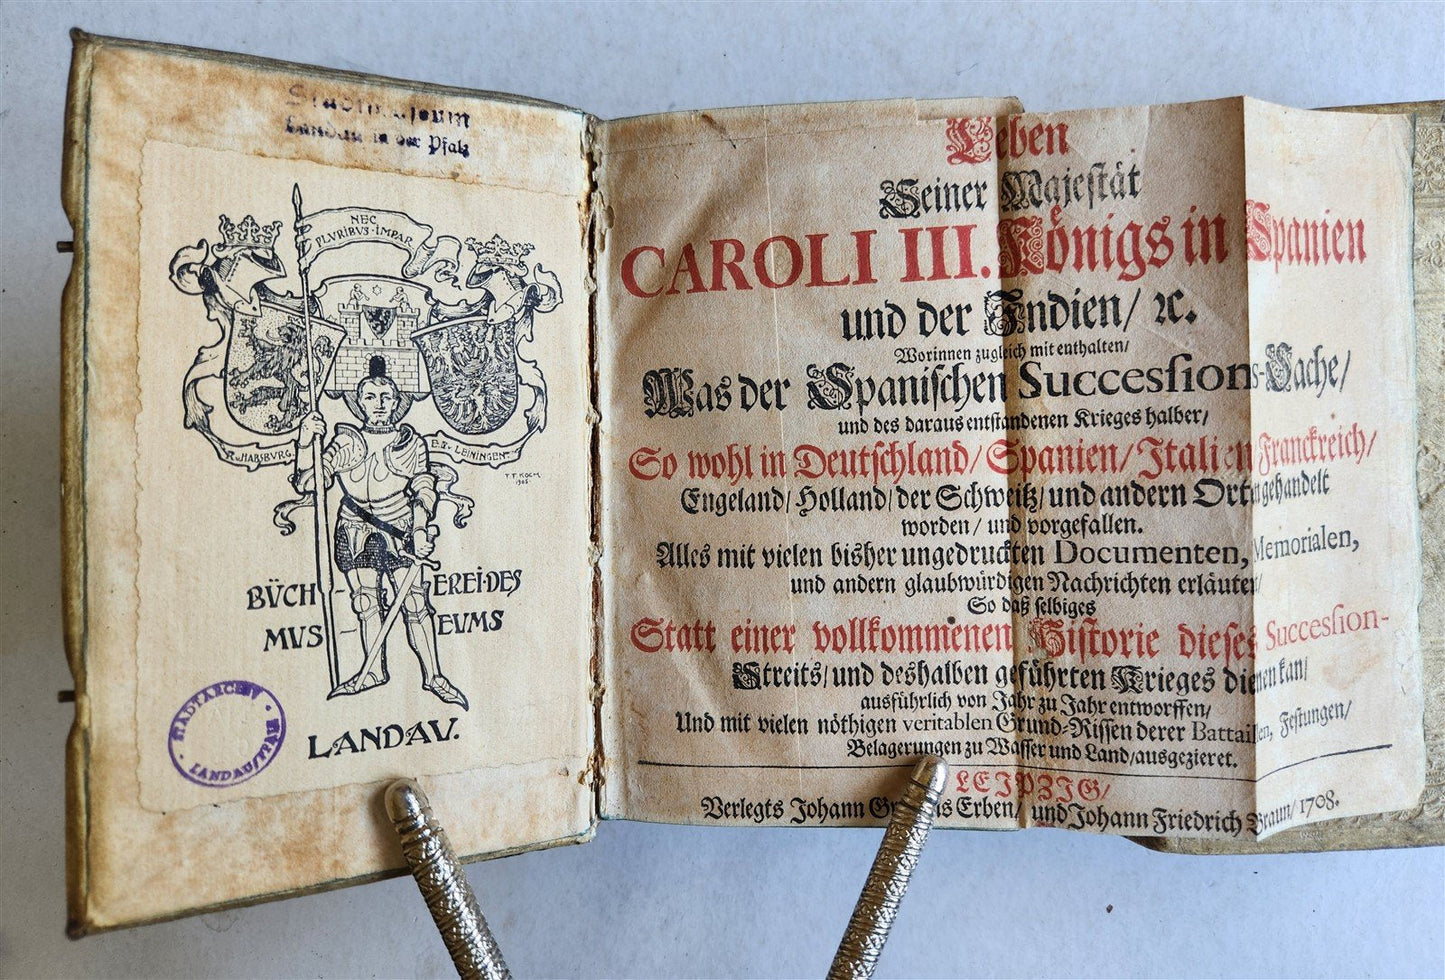 Stadtmuseum
Landau in der Pfalz
NEC
PLVRIBVS·IMPAR
R.v.HABSBVRG.
E.v. LEININGEN.
F.F. KOCH.
1905.
BÜCH-EREI·DES
MVS-EVMS
LANDAV.
STADTARCHIV
LANDAU/PFALZ
Leben
Seiner Majestät
CAROLI III. Königs in Spanien
und der Indien/ ꝛc.
Worinnen zugleich mit enthalten/
Was der Spanischen Succession-Sache/
und des daraus entstandenen Krieges halber/
So wohl in Deutschland/ Spanien/ Italien Franckreich/
Engeland/ Holland/ der Schweitz/ und andern Orten gehandelt
worden/ und vorgefallen.
Alles mit vielen bisher ungedruckten Documenten, Memorialen,
und andern glaubwürdigen Nachrichten erläutert/
So daß selbiges
Statt einer vollkommenen Historie dieses Succession-
Streits/ und deshalben geführten Krieges dienen kan/
ausführlich von Jahr zu Jahr entworffen/
Und mit vielen nöthigen veritablen Grund-Rissen derer Bataillen, Festungen/
Belagerungen zu Wasser und Land/ausgezieret.
LEIPZIG/
Verlegts Johann Erben/ und Johann Friedrich Braun/ 1708.